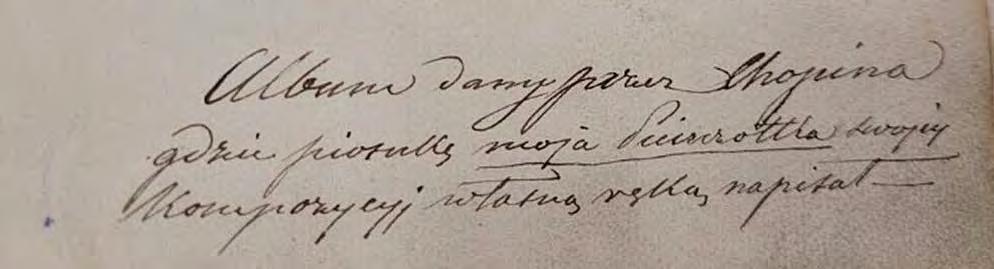 Album dany przez Chopina
gdzie piosnkę moja Pieszczotka swojej
Kompozycyj własną ręką napisał —